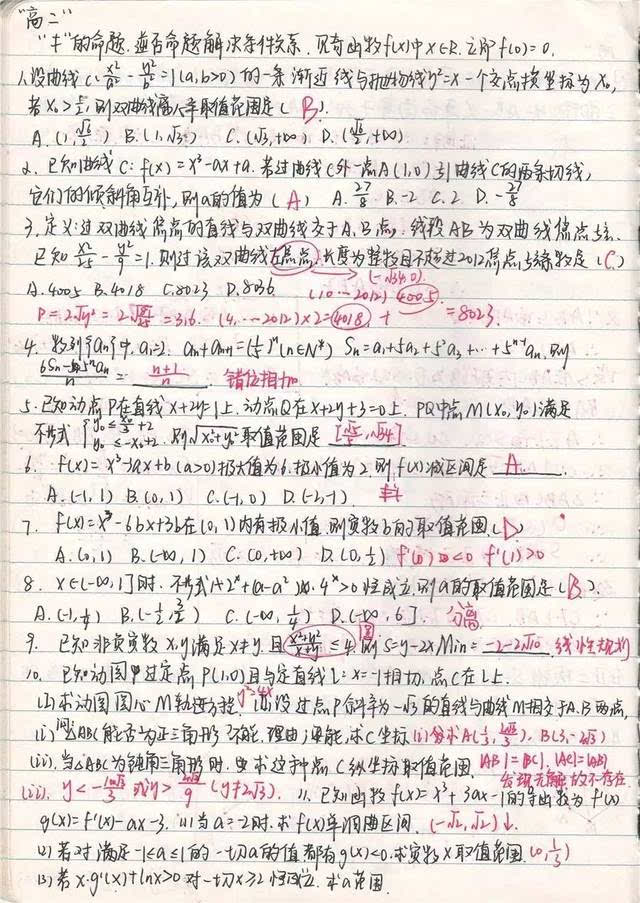 "高二"
"キ"的命题.逆否命题解决条件关系. 见奇函数f(x)中x∈R.立即f(0)=0.
1.设曲线C: x²/a² - y²/b² =1(a,b>0)的一条渐近线与抛物线y²=x一个交点横坐标为x₀,
若x₀>½,则双曲线离心率取值范围是( B ).
A.(1,√6/2) B.(1,√3) C.(√3,+∞) D.(√6/2,+∞)
2.已知曲线C: f(x)=x³-ax+a.若过曲线C外一点A(1,0)引曲线C的两条切线,
它们的倾斜角互补,则a的值为(A) A.27/8 B.-2 C.2 D.-27/8
3.定义:过双曲线焦点的直线与双曲线交于A、B点,线段AB为双曲线焦点弦.
已知x²/25 - y²/9 =1.则过该双曲线左焦点,长度为整数且不超过2012焦点弦条数是(C)
(-√34,0)
A.4005 B.4018 C.8023 D.8036 (10…2012) 4005
=3.6. (4,…2012)×2=4018. + =8023.
4.数列{an}中,a₁=2. an+an+1=(1/5)ⁿ(n∈N*) Sn=a₁+5a₂+5²a₃+…+5ⁿ⁻¹an,则
(6Sn-5ⁿan)/n = (n+1)/n. 错位相加
5.已知动点P在直线x+2y=1上.动点Q在x+2y+3=0上. PQ中点M(x₀,y₀)满足
不等式{y₀≤x₀/3+2 y₀≤-x₀+2.则√x₀²+y₀²取值范围是[√5/5,√34]
6. f(x)=x³-3ax+b(a>0)极大值为6.极小值为2,则f(x)减区间是 A.
A.(-1,1) B.(0,1) C.(-1,0) D.(-2,-1)
7. f(x)=x³-6bx+3b在(0,1)内有极小值.则实数b的取值范围(D)
A.(0,1) B.(-∞,1) C.(0,+∞) D.(0,½) f'(0)<0 f'(1)>0
8. x∈(-∞,1]时.不等式1+2ˣ+(a-a²)·4ˣ>0恒成立.则a的取值范围是(B).
A.(-1,¼) B.(-½,3/2) C.(-∞,¼) D.(-∞,6]. 分离
9.已知非负实数x,y满足x≠y.且(x²+y²)/(x+y)≤4.则S=y-2x Min= -2-2√10. 线性规划
10.已知动圆P过定点P(1,0)且与定直线l:x=-1相切.点C在l上.
(1)求动圆圆心M轨迹方程. y²=4x (2)设过点P斜率为-√3的直线与曲线M相交于A.B两点,
(i)问△ABC能否为正三角形?不能,理由;若能,求C坐标 (i)分求A(⅓,2√3/3). B(3,-2√3)
(ii).当△ABC为钝角三角形时.求这时点C纵坐标取值范围. |AB|=|BC|. |AC|=|AB|
发现无解.故不存在
(ii). y<-10√3/3或y>2√3/9 (y≠2√3). 11.已知函数f(x)=x³+3ax-1的导函数为f'(x)
g(x)=f'(x)-ax-3. (1)当a=-2时.求f(x)单调区间. (-√2,√2)↓.
(2)若对满足-1≤a≤1的一切a的值都有g(x)<0.求实数x取值范围.(0,⅓)
(3)若x·g'(x)+lnx>0对一切x≥2恒成立.求a范围.